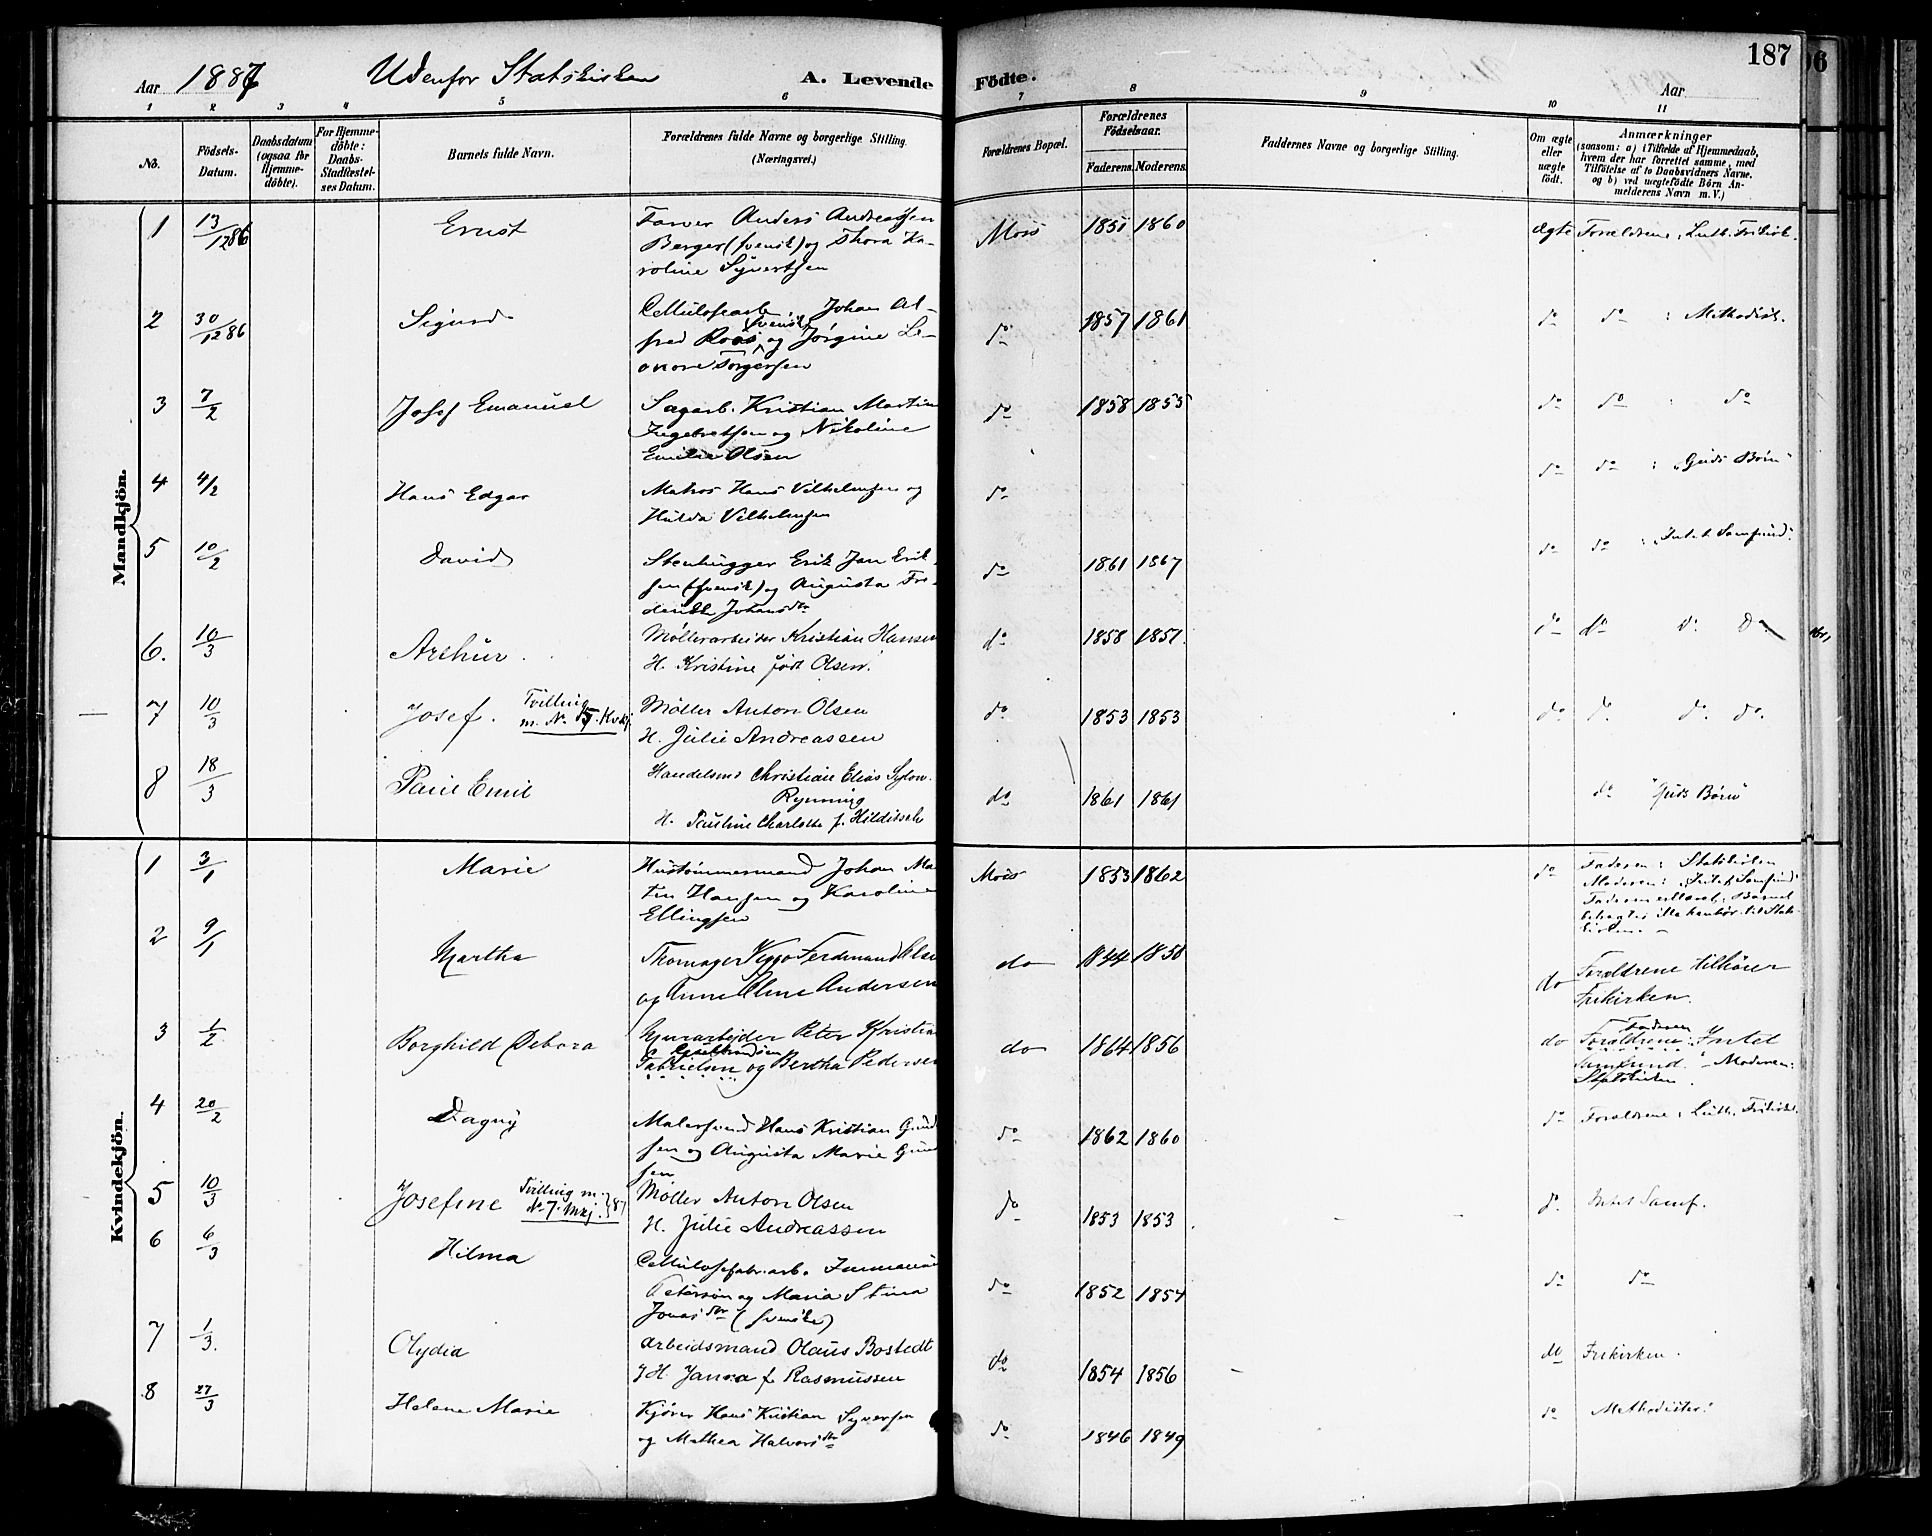 Aar 1887 Udenfor Statskirken A. Levende Födte. 187
Aar
1 2 3 4 5 6 7 8 9 10 11
No.
Födsels-Datum.
Daabsdatum (ogsaa for Hjemme-döbte).
For Hjemme-döbte: Daabs-Stadfæstel-ses Datum.
Barnets fulde Navn.
Forældrenes fulde Navne og borgerlige Stilling. (Næringsvei.)
Forældrenes Bopæl.
Forældrenes Födselsaar.
Faderens. Moderens.
Faddernes Navne og borgerlige Stilling.
Om ægte eller uægte födt.
Anmærkninger
(saasom: a) i Tilfælde af Hjemmedaab,
hvem der har forrettet samme, med
Tilföielse af to Daabsvidners Navne,
og b) ved uægtefödte Börn An-
melderens Navn m. V.)
Mandkjön.
1 13/12 86 Ernst Farver Anders Andreassen Moss 1851 1860 ægte Forældrene: Luth. Frikirk.
Berger (svensk) og Thora Ka-
roline Syvertsen
2 30/12 86 Sigurd Cellulosearb. Johan Al- do 1857 1861 do do : Methodist.
fred Roos (svensk) og Jørgine Le-
onore Torgersen
3 7/2 Josef Emanuel Sagarb. Kristian Martin do 1858 1855 do do : do
Ingebretsen og Nikoline
Emilie Olsen
4 4/2 Hans Edgar Matros Hans Vilhelmsen og do do do : "Guds Børn"
Hulda Vilhelmsen
5 10/2 David Stenhugger Erik Jan Erik- do 1861 1867 do do : "Intet Samfund"
sen (svensk) og Augusta Fre-
Johansdtr
6. 10/3 Arthur. Møllerarbeider Kristian Hansen do 1858 1851. do do do do.
H. Kristine født Olsen.
7 10/3 Josef. Tvilling m. No. 5. Kvkj. Møller Anton Olsen do 1853 1853 do do. do. do.
H. Julie Andreassen
8 18/3 Paul Emil Handelsm. Christian Elias Sylow. do 1861 1861 do "Guds Børn"
Rynning
H. Pauline Charlotte f. Hildisch
Kvindekjön.
1 3/1 Marie Hustømmermand Johan Mar- Moss 1853 1862 do Faderen: Statskirken
tin Hansen og Karoline Moderen: "Intet Samfund"
Ellingsen Faderen erklæret, Barnet
ikke at til Stats-
kirken. –
2 9/1 Martha Viggo Ferdinand do 1844 1850 do Forældrene tilhører
og Anne Oline Andersen Frikirken.
3 1/2 Borghild Debora Murarbejder Peter Kristian do 1864 1856 do Forældrene: Faderen Intet
Gabrielsen og Bertha Pedersen Samfund. – Moderen:
Statskirken.
4 20/2 Dagny Malersvend Hans Kristian Gund- do 1862 1860 do Forældrene: Luth. Frikirk.
sen og Augusta Marie Gund-
sen
5 10/3 Josefine Tvilling m. No 7. Mkj. 87 Møller Anton Olsen do 1853 1853 do. Intet Samf.
H. Julie Andreassen
6 6/3 Hilma Cellulosefabr.arb. Immanuel do 1852 1854 do do
Peterson og Maria Stina
Jonasdtr (svenske)
7 1/3. Olydia Arbeidsmand Olaus Bostedt do 1854 1856 do Frikirken.
H. Janna f. Rasmussen
8 27/3 Helene Marie Kjører Hans Kristian Syversen do 1846 1849 do Methodister.
og Mathea Halvorsdtr